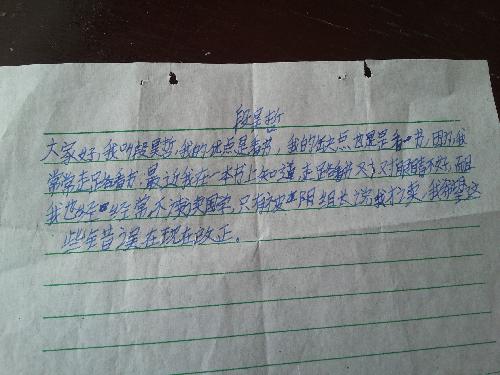 段昊哲
大家好,我叫段昊哲,我的优点是看书,我的缺点也是是看书,因为我
常常走足各看书,最近我在一本书上知道,走足各看书又对眼睛不好,而且
我也好经常不读读国学,只有阳组长说我才读,我希望这
些错误在现在改正。